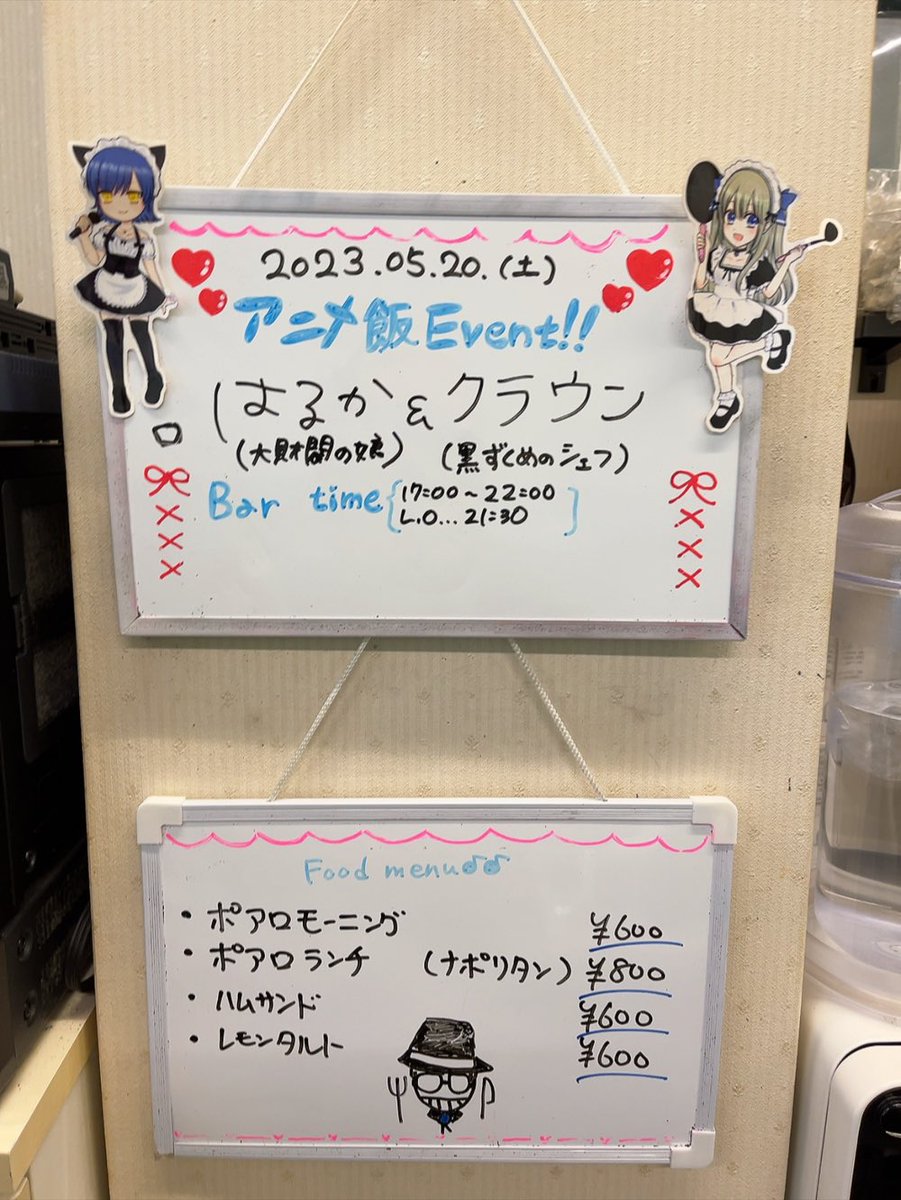 2023.05.20.(土)
アニメ飯Event!!
はるか&クラウン
(大財閥の娘) (黒ずくめのシェフ)
Bar time{17:00～22:00
L.O...21:30
Food menu♫♫
・ポアロモーニング ¥600
・ポアロランチ (ナポリタン) ¥800
・ハムサンド ¥600
・レモンタルト ¥600